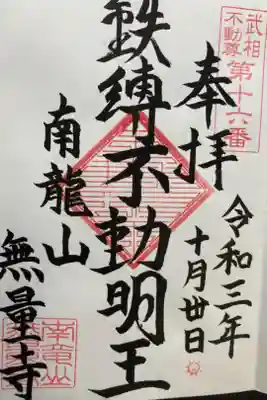 武相
不動尊
第十六番
奉拝
令和三年
十月丗日
鉄縛不動明王
南龍山
無量寺